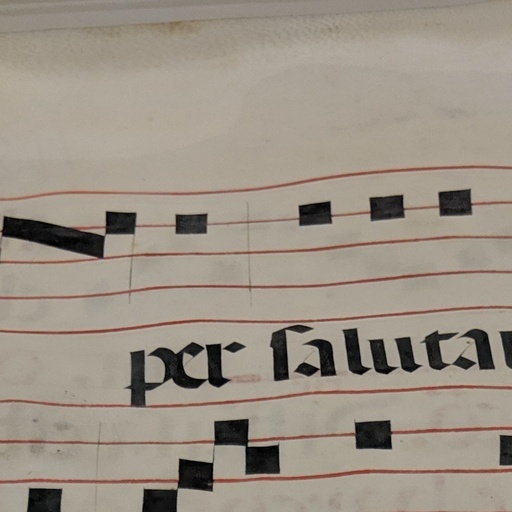 per saluta